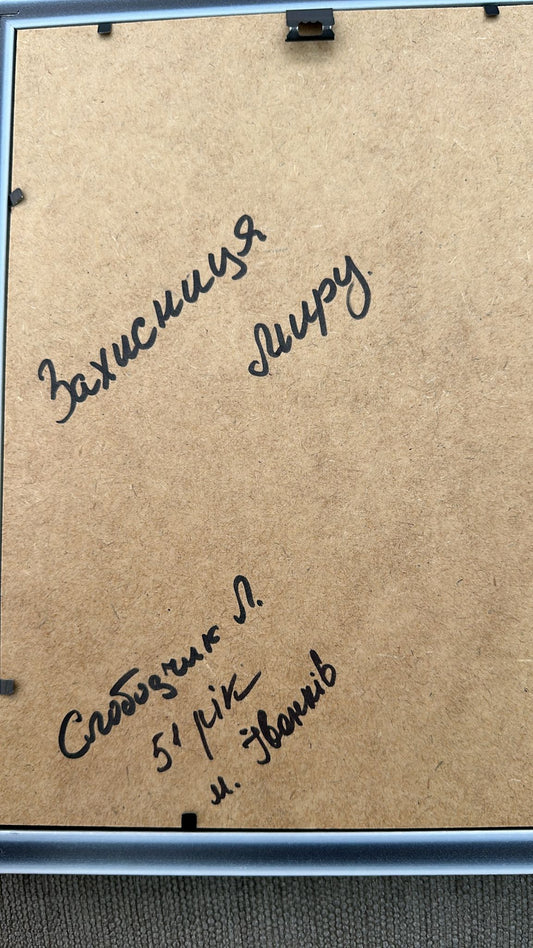 Захисниця
миру.
Слободчик Л.
51 рік
м. Іванків